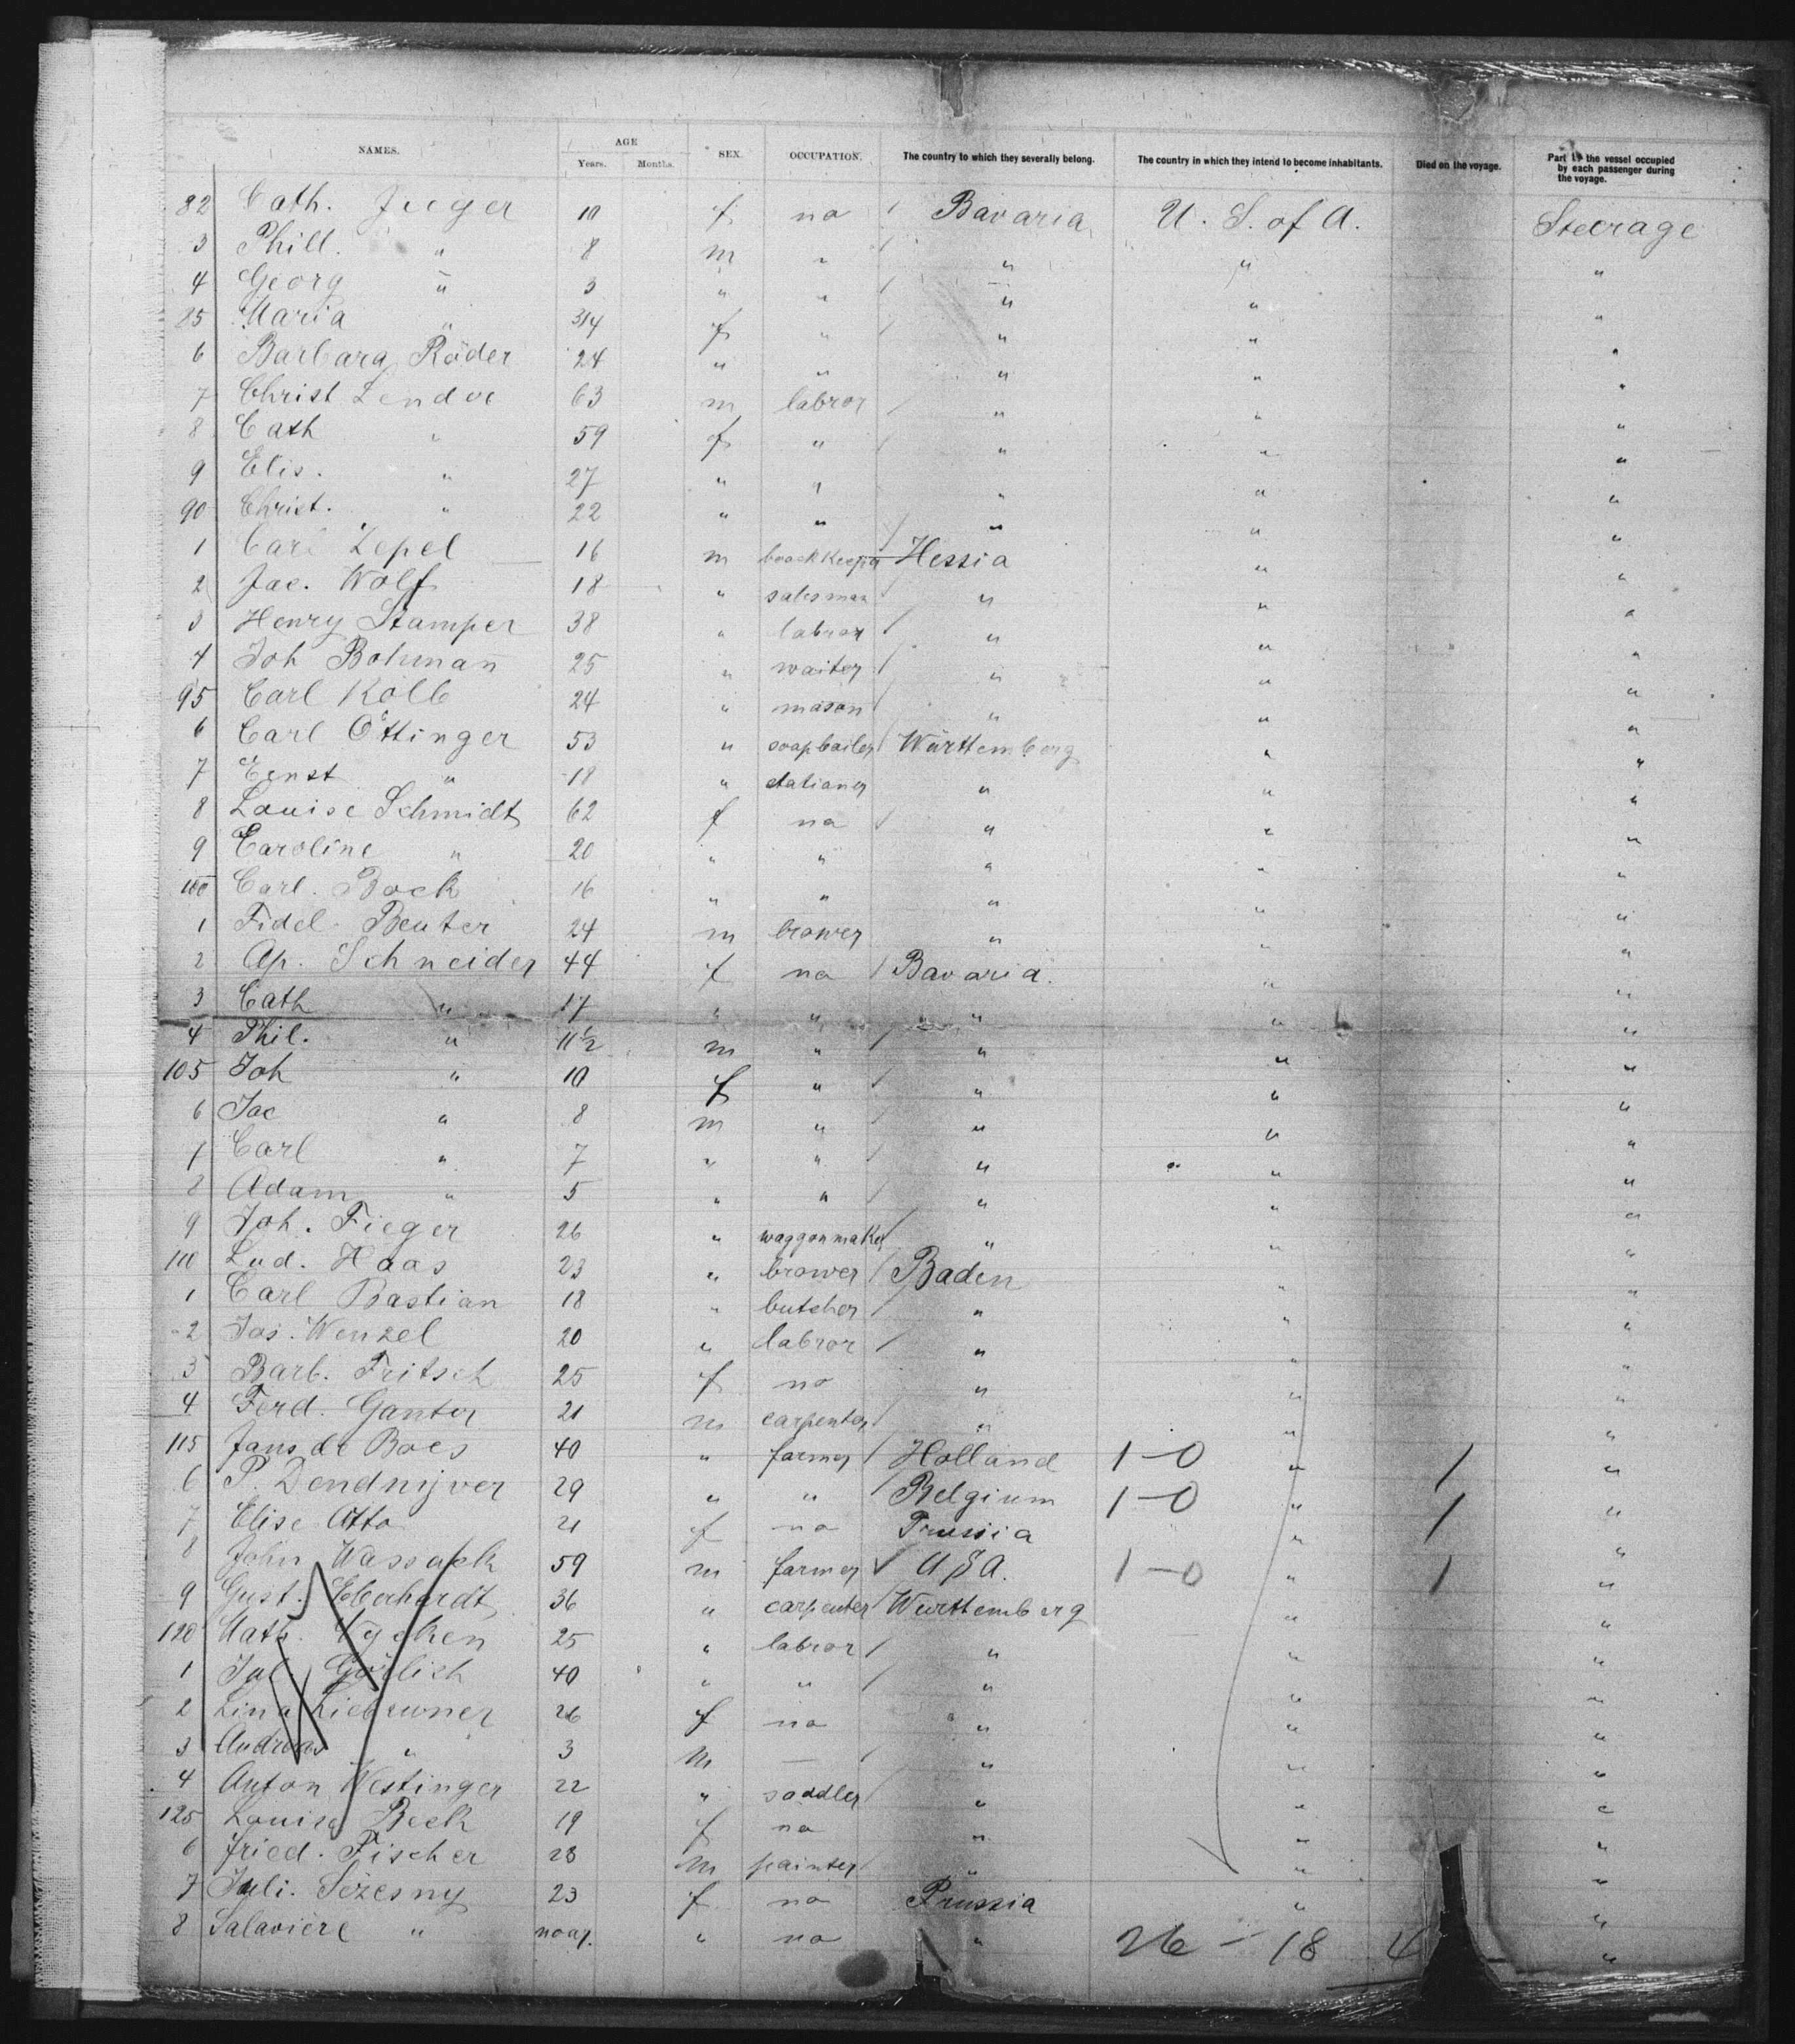 NAMES. AGE Years. Months. SEX. OCCUPATION. The country to which they severally belong. The country in which they intend to become inhabitants. Died on the voyage. Part of the vessel occupied by each passenger during the voyage.
82 Cath. Jeeger 10 f no / Bavaria U. S. of A. Steerage
3 Phill. " 8 m " / " " "
4 Georg " 3 " " / " " "
85 Maria " 3/4 f " / " " "
6 Barbara Röder 24 " " " " "
7 Christ Lendve 63 m labror / " " "
8 Cath " 59 f " / " " "
9 Elis. " 27 " " " " "
90 Christ. " 22 " " / " " "
1 Carl Zepel 16 m boockkeeper Hessia " "
2 Jac. Wolf 18 " salesman / " " "
3 Henry Stamper 38 " labror / " " "
4 Joh Bohman 25 " waiter / " " "
95 Carl Kolb 24 " mason / " " "
6 Carl Öttinger 53 " soapboiler / Württemberg " "
7 Ernst " 18 " stationer " " "
8 Louise Schmidt 62 f no / " " "
9 Caroline " 20 " " " " "
100 Carl. Bock 16 " " " " "
1 Fidel Beuter 24 m brower " " "
2 Ap. Schneider 44 f no / Bavaria. " "
3 Cath " 17 " " " " "
4 Phil. " 11 1/2 m " / " " "
105 Joh " 10 f " / " " "
6 Jac " 8 m " / " " "
7 Carl " 7 " " / " " "
8 Adam " 5 " " / " " "
9 Joh. Fieger 26 " waggonmaker / " " "
110 Lud. Haas 23 " brower / Baden " "
1 Carl Bastian 18 " butcher / " " "
2 Jos. Wenzel 20 " labror / " " "
3 Barb. Fritsch 25 f no " " "
4 Ferd. Ganter 21 m carpenter / " " "
115 Jans de Boes 40 " farmer / Holland 1-0 " / "
6 P. Dendnijver 29 " " / Belgium 1-0 " / "
7 Elise Otto 21 f no Prussia " "
8 John Wassack 59 m farmer / U S A. 1-0 " / "
9 Gust. Eberhardt 36 " carpenter / Wurttemberg " "
120 Math. 25 " labror / " " "
1 Jac. Görlich 40 " " / " " "
2 Lina 26 f no " " "
3 Andreas " 3 m — / " " "
4 Anton Westinger 22 " saddler / " " "
125 Louisa Beck 19 f no " " "
6 Fried. Fischer 28 m painter / " " "
7 Juli. Sezesny 23 f no Prussia " "
8 Salaviere " " no " 26 - 18 4 "